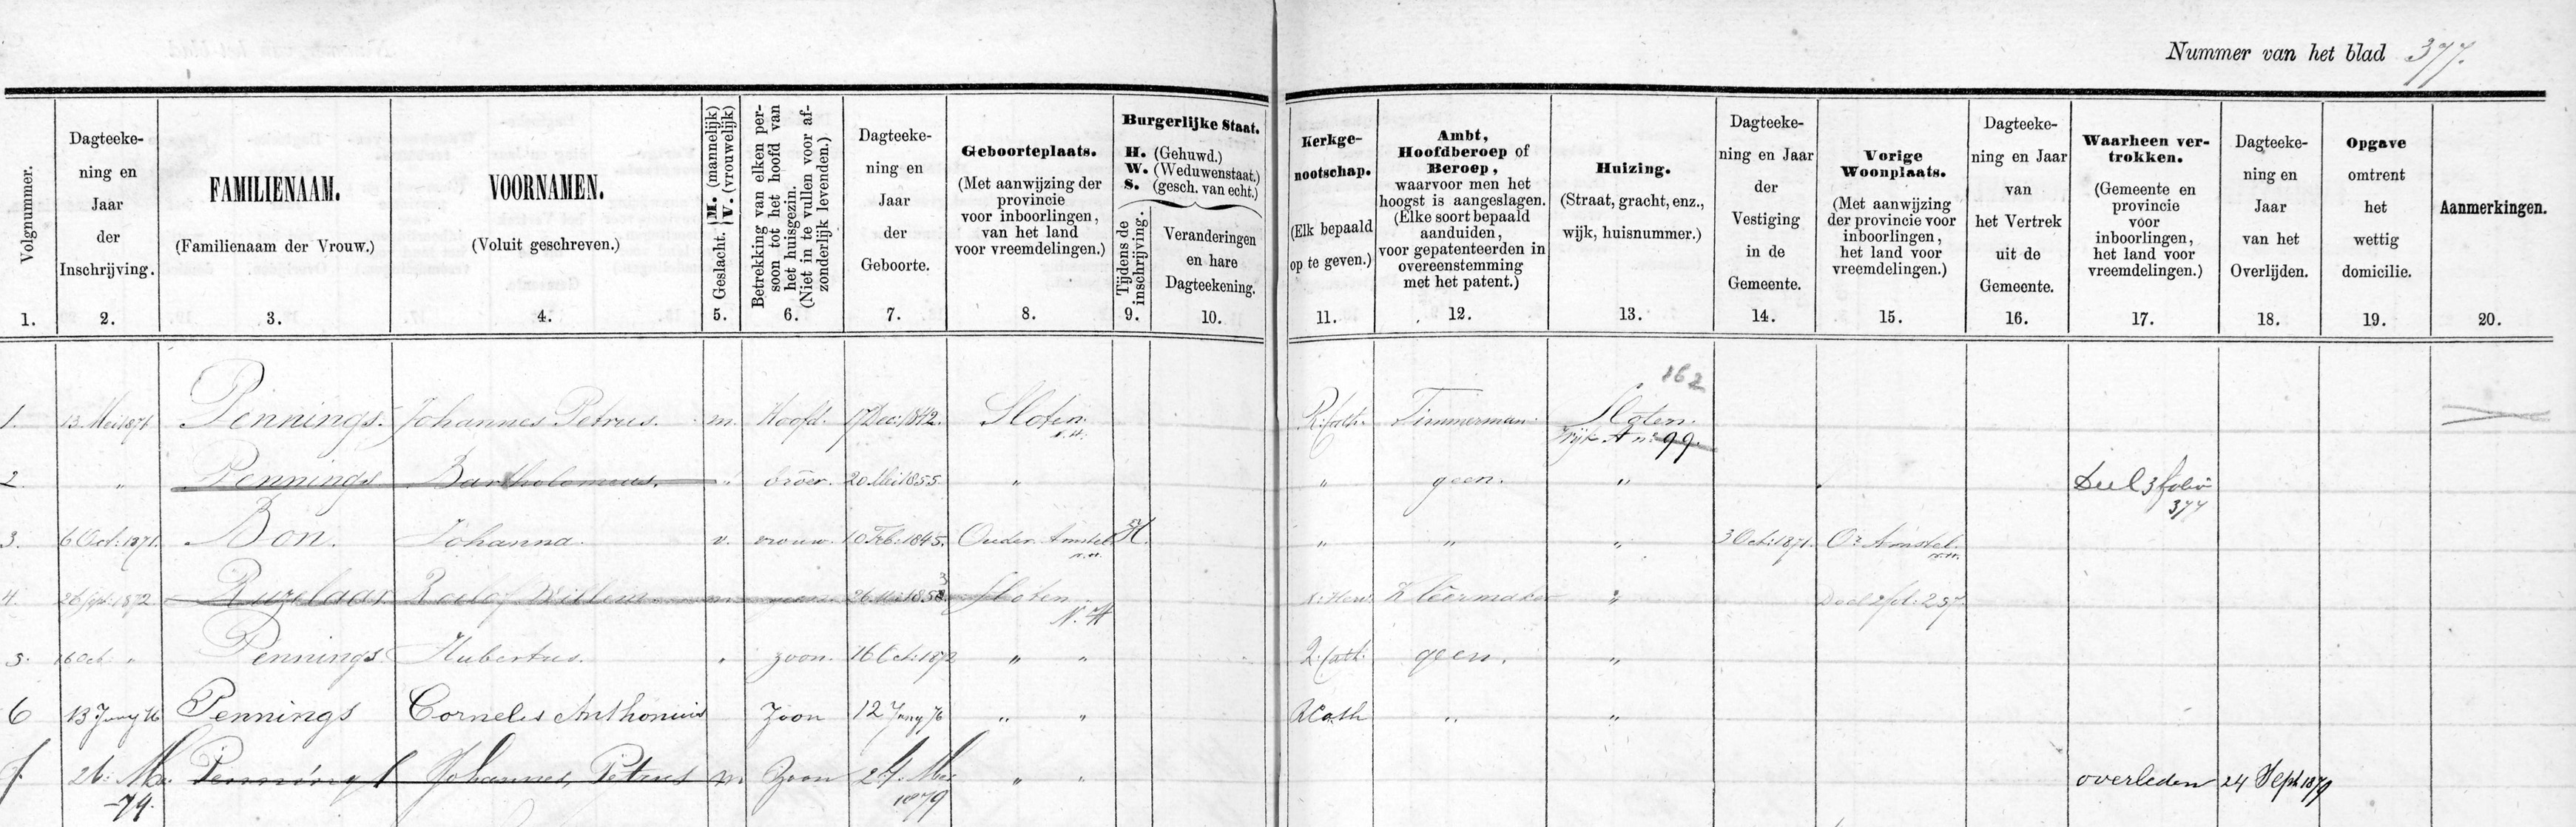 Nummer van het blad 377.
Volgnummer.
1.
Dagteeke-
ning en
Jaar
der
Inschrijving.
2.
FAMILIENAAM.
(Familienaam der Vrouw.)
3.
VOORNAMEN.
(Voluit geschreven.)
4.
Geslacht. M. (mannelijk) V. (vrouwelijk)
5.
Betrekking van elken per-
soon tot het hoofd van
het huisgezin.
(Niet in te vullen voor af-
zonderlijk levenden.)
6.
Dagteeke-
ning en
Jaar
der
Geboorte.
7.
Geboorteplaats.
(Met aanwijzing der
provincie
voor inboorlingen,
van het land
voor vreemdelingen.)
8.
Burgerlijke Staat.
H. (Gehuwd.)
W. (Weduwenstaat.)
S. (gesch. van echt.)
Tijdens de
inschrijving.
9.
Veranderingen
en hare
Dagteekening.
10.
Kerkge-
nootschap.
(Elk bepaald
op te geven.)
11.
Ambt,
Hoofdberoep of
Beroep,
waarvoor men het
hoogst is aangeslagen.
(Elke soort bepaald
aanduiden,
voor gepatenteerden in
overeenstemming
met het patent.)
12.
Huizing.
(Straat, gracht, enz.,
wijk, huisnummer.)
13.
Dagteeke-
ning en Jaar
der
Vestiging
in de
Gemeente.
14.
Vorige
Woonplaats.
(Met aanwijzing
der provincie voor
inboorlingen,
het land voor
vreemdelingen.)
15.
Dagteeke-
ning en Jaar
van
het Vertrek
uit de
Gemeente.
16.
Waarheen ver-
trokken.
(Gemeente en
provincie
voor
inboorlingen,
het land voor
vreemdelingen.)
17.
Dagteeke-
ning en
Jaar
van het
Overlijden.
18.
Opgave
omtrent
het
wettig
domicilie.
19.
Aanmerkingen.
20.
162
1. 13 Mei 1871 Pennings. Johannes Petrus. m. Hoofd. 17 Dec: 1842. Sloten. R. Cath. Timmerman. Sloten.
N.H. Wijk A no 99.
2. " Pennings Bartholomeus. " broer. 20 Mei 1855. " " geen. " Deel 3 folio
377
3. 6 Oct: 1871. Bon. Johanna. v. vrouw. 10 Feb: 1845. Ouder Amstel. H. " " " 3 Oct: 1871. Or Amstel.
N.H. N.H.
4. 26 Sept: 1872 Ruzelaar Roelof Willem m 26 1853 Sloten Kleermaker " Deel 2 fol: 257.
N.H
5. 16 Oct. " Pennings Hubertus. " zoon. 16 Oct: 1872 " " R. Cath. geen. "
6 13 Juny 76 Pennings Cornelis Anthonius Zoon 12 Juny 76 " " R Cath " "
7. 26. Mei Pennings Johannes, Petrus m. Zoon 24. Mei " " overleden 24 Sept 1879
-79. 1879